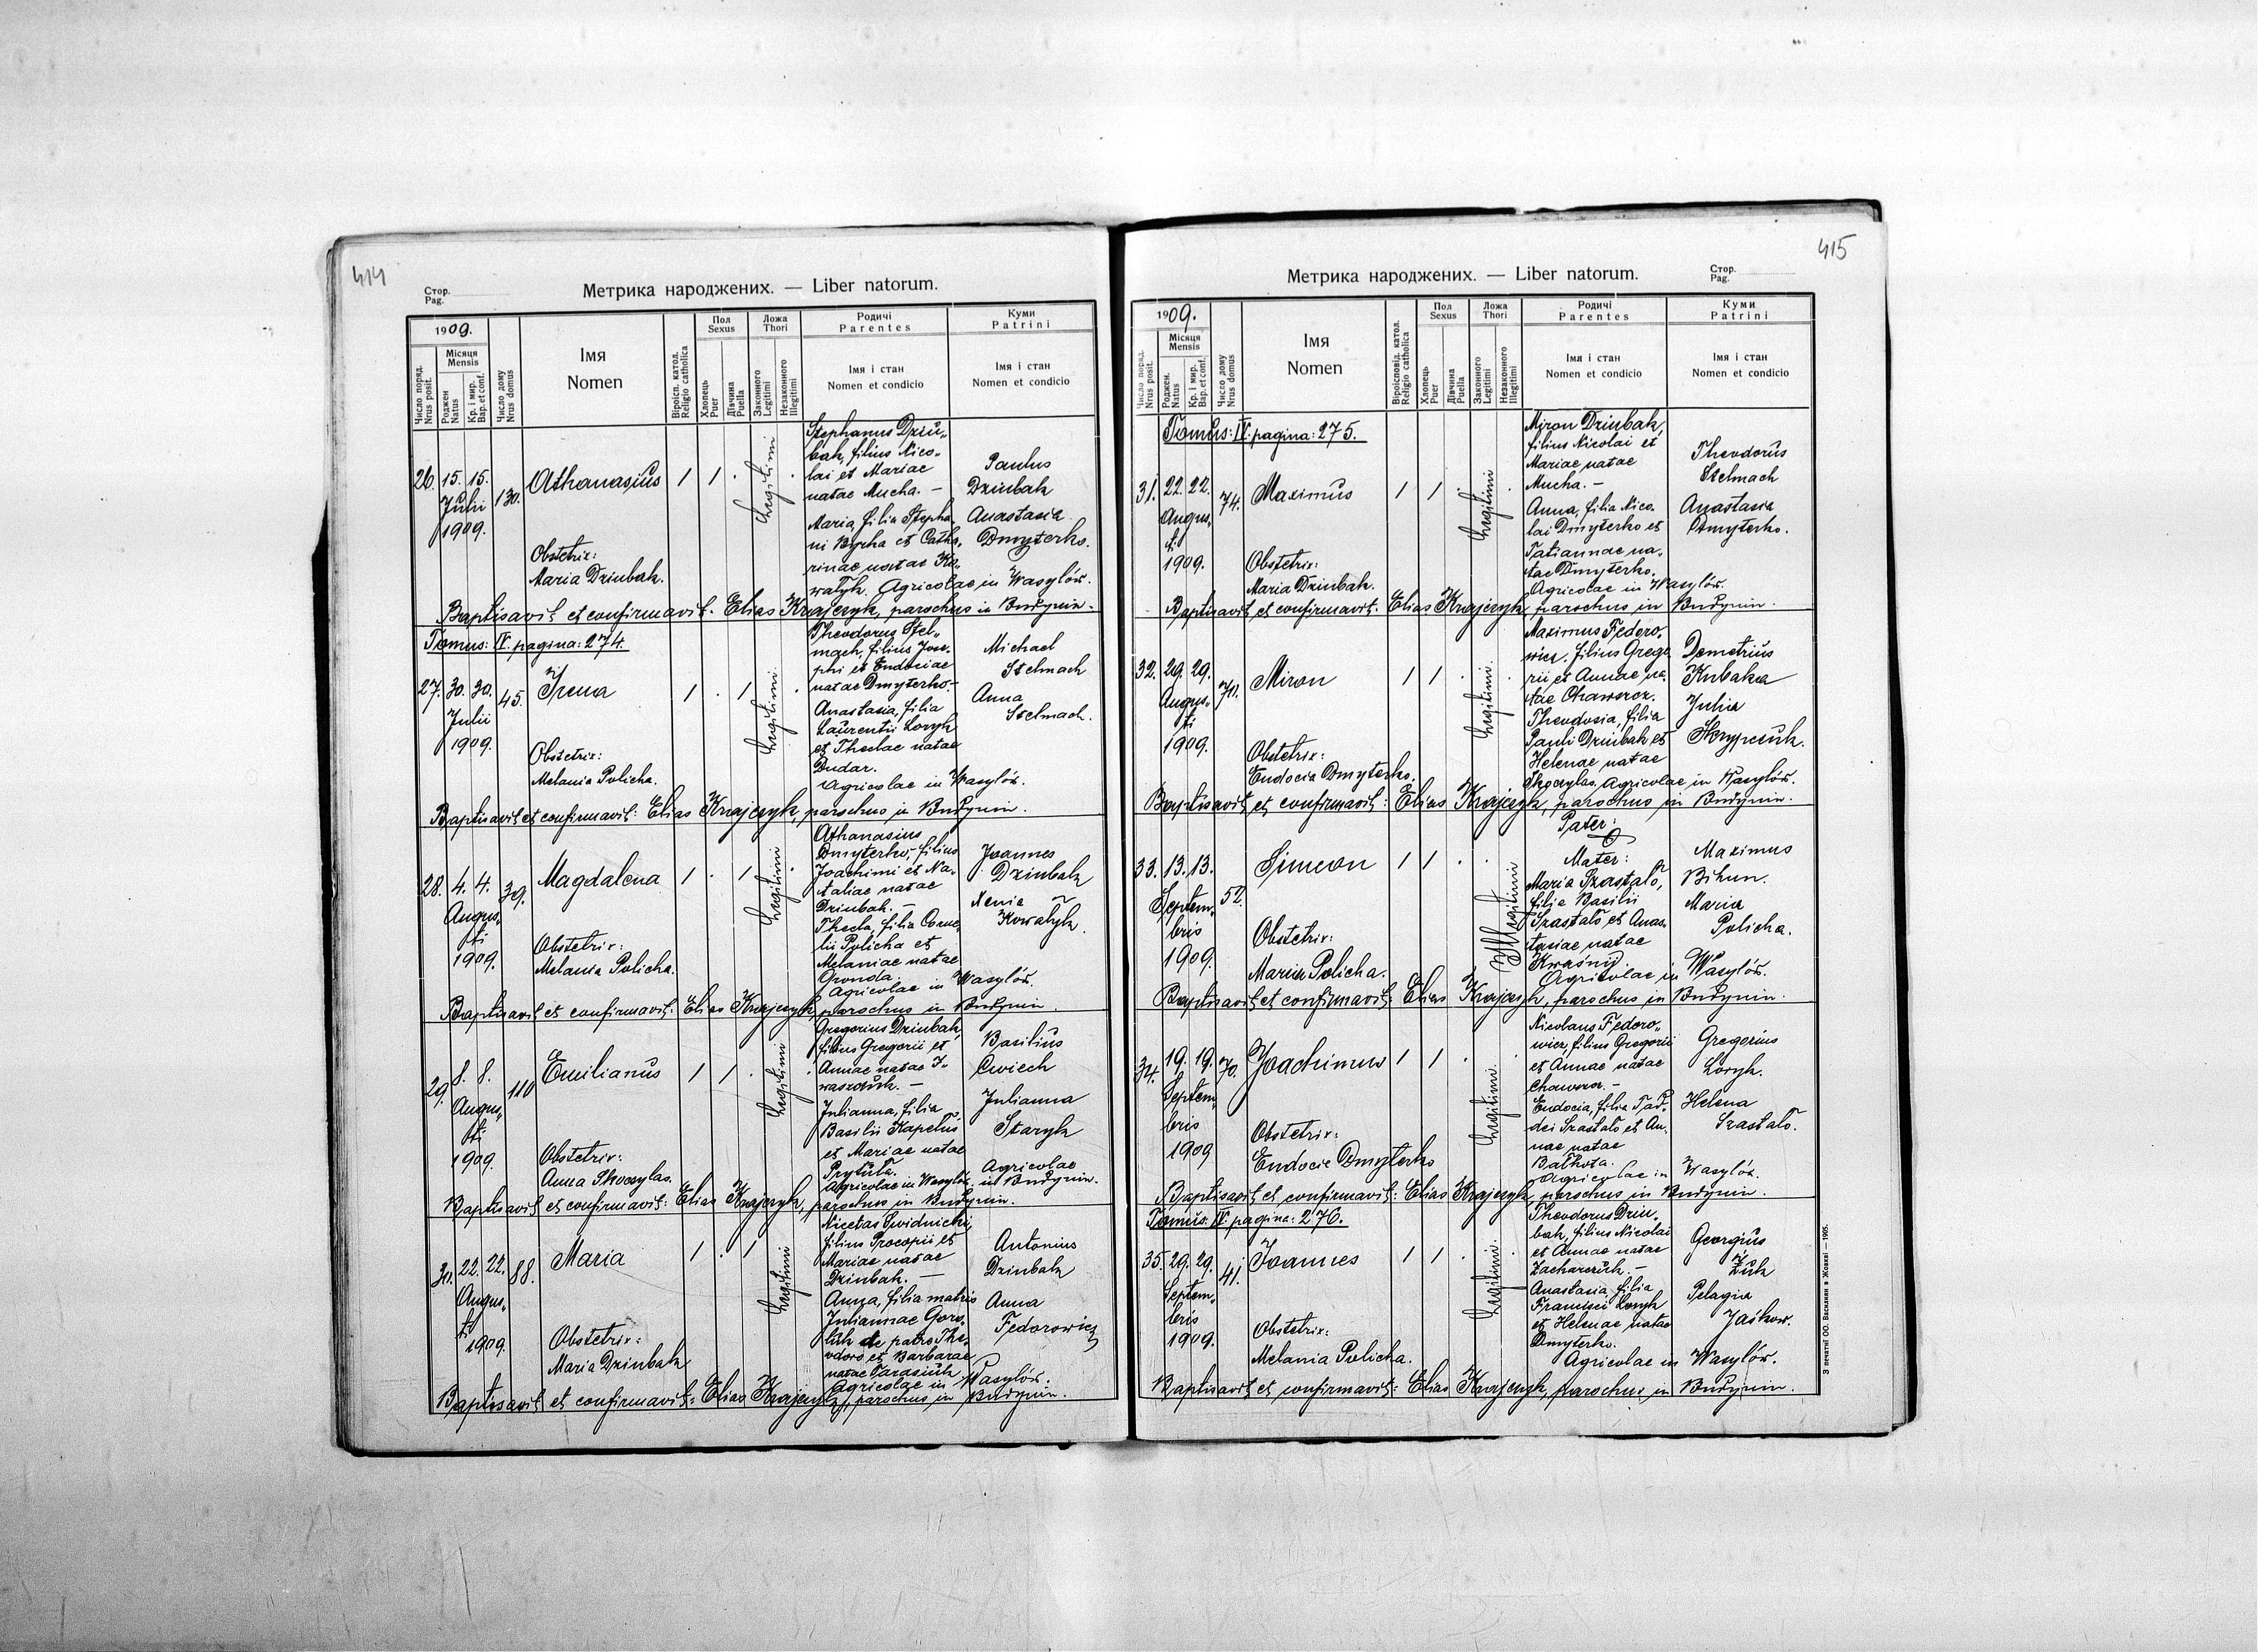 414
Стор.
Pag.
Метрика народжених. — Liber natorum.
1909.
Місяця
Mensis
Число поряд.
Nrus posit.
Роджен
Natus
Кр. і мир.
Bap. et conf.
Число дому
Nrus domus
Імя
Nomen
Віроісп. катол.
Religio catholica
Пол
Sexus
Хлопець
Puer
Дівчина
Puella
Ложа
Thori
Законного
Legitimi
Незаконного
Illegitimi
Родичі
Parentes
Імя і стан
Nomen et condicio
Куми
Patrini
Імя і стан
Nomen et condicio
26. 15. 15. Julii 1909. 130. Athanasius 1 1 . Legitimi .
Stephanus Dziu„
bak, filius Nico„
lai et Mariae
natae Mucha. —
Maria, filia Stepha„
ni Byrka et Catha„
rinae natae Ko„
walyk. Agricolae in Wasylów.
Paulus
Dziubak
Anastasia
Dmyterko.
Obstetrix:
Maria Dziubak.
Baptisavit et confirmavit: Elias Krajczyk, parochus in Budynin.
Tomus: IV. pagina: 274.
27. 30. 30. Julii 1909. 45. Irena 1 . 1 Legitimi .
Theodorus Stel„
mach, filius Jose„
phi et Eudociae
natae Dmyterko.
Anastasia, filia
Laurentii Loryk
et Theclae natae
Dudar.
Agricolae in Wasylów.
Michael
Stelmach
Anna
Stelmach.
Obstetrix:
Melania Policha.
Baptisavit et confirmavit: Elias Krajczyk, parochus in Budynin.
28. 4. 4. Augusti 1909. 39. Magdalena 1 . 1 Legitimi .
Athanasius
Dmyterko, filius
Joachimi et Na„
taliae natae
Dziubak. —
Thecla, filia Corne„
lii Policha et
Melaniae natae
Gronda.
Agricolae in Wasylów.
Joannes
Dziubak
Xenia
Kowalyk.
Obstetrix:
Melania Policha.
Baptisavit et confirmavit: Elias Krajczyk, parochus in Budynin.
29. 8. 8. Augusti 1909. 110 Emilianus 1 1 . Legitimi .
Gregorius Dziubak,
filius Gregorii et
Annae natae I„
waszczuk. —
Julianna, filia
Basilii Kapelus
et Mariae natae
Prytula.
Agricolae in Wasylów.
Basilius
Cwiech
Julianna
Staryk
Agricolae
in Budynin.
Obstetrix:
Anna Skoczylas.
Baptisavit et confirmavit: Elias Krajczyk, parochus in Budynin.
30. 22. 22. Augusti 1909. 88. Maria 1 . 1 Legitimi
Nicetas Swidnicki,
filius Procopii et
Mariae natae
Dziubak. —
Anna, filia matris
Juliannae Goro„
luk de patre The„
odoro et Barbarae
natae Tarasiuk
Agricolae in Wasylów.
Antonius
Dziubak
Anna
Fedorowicz
Obstetrix:
Maria Dziubak
Baptisavit et confirmavit: Elias Krajczyk, parochus in Budynin.
415
Стор.
Pag.
Метрика народжених. — Liber natorum.
1909.
Місяця
Mensis
Число поряд.
Nrus posit.
Роджен.
Natus
Кр. і мир.
Bap. et conf.
Число дому
Nrus domus
Імя
Nomen
Віроісповід. катол.
Religio catholica
Пол
Sexus
Хлопець
Puer
Дівчина
Puella
Ложа
Thori
Законного
Legitimi
Незаконного
Illegitimi
Родичі
Parentes
Імя і стан
Nomen et condicio
Куми
Patrini
Імя і стан
Nomen et condicio
Tomus: IV. pagina: 275.
31. 22. 22. Augusti 1909. 74. Maximus 1 1 . Legitimi .
Miron Dziubak,
filius Nicolai et
Mariae natae
Mucha. —
Anna, filia Nico„
lai Dmyterko et
Tatiannae na„
tae Dmyterko.
Agricolae in Wasylów.
Theodorus
Stelmach
Anastasia
Dmyterko.
Obstetrix:
Maria Dziubak.
Baptisavit et confirmavit: Elias Krajczyk, parochus in Budynin.
32. 29. 29. Augusti 1909. 70. Miron 1 1 . Legitimi .
Maximus Fedoro„
wicz, filius Grego„
rii et Annae na„
tae Chawszcz.
Theodosia, filia
Pauli Dziubak et
Helenae natae
Skoczylas. Agricolae in Wasylów.
Demetrius
Kubaka
Julia
Skrypczuk.
Obstetrix:
Eudocia Dmyterko.
Baptisavit et confirmavit: Elias Krajczyk, parochus in Budynin.
33. 13. 13. Septembris 1909. 52. Simeon 1 1 . . Illegitimi
Pater:
Mater:
Maria Szastalo,
filia Basilii
Szastalo et Anas„
tasiae natae
Kwaśnij.
Agricolae in Wasylów.
Maximus
Bihun.
Maria
Policha.
Obstetrix:
Maria Policha.
Baptisavit et confirmavit: Elias Krajczyk, parochus in Budynin.
34. 19. 19. Septembris 1909 70. Joachimus 1 1 . Legitimi .
Nicolaus Fedoro„
wicz, filius Gregorii
et Annae natae
Chawszcz. —
Eudocia, filia Tad„
dei Szastalo et An„
nae natae
Balkota.
Agricolae in Wasylów.
Gregorius
Loryk.
Helena
Szastalo.
Obstetrix:
Eudocia Dmyterko
Baptisavit et confirmavit: Elias Krajczyk, parochus in Budynin.
Tomus: IV. pagina: 276.
35. 29. 29. Septembris 1909. 41. Joannes 1 1 . Legitimi. .
Theodorus Dziu„
bak, filius Nicolai
et Annae natae
Zacharczuk. —
Anastasia, filia
Francisci Loryk
et Helenae natae
Dmyterko.
Agricolae in Wasylów.
Georgius
Żuk
Pelagia
Jaśkow.
Obstetrix:
Melania Policha.
Baptisavit et confirmavit: Elias Krajczyk, parochus in Budynin.
З печатні ОО. Василиян в Жовкві — 1905.